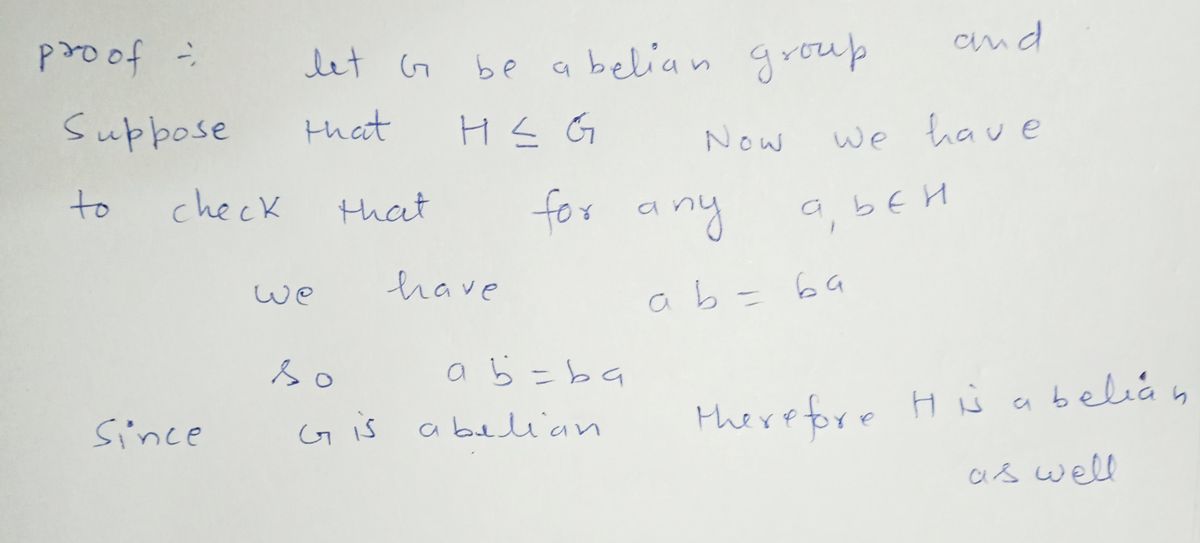 proof ÷ let G be abelian group and
Suppose that H ≤ G Now we have
to check that for any a, b ∈ H
we have ab = ba
so ab = ba
Since G is abelian therefore H is abelian
as well